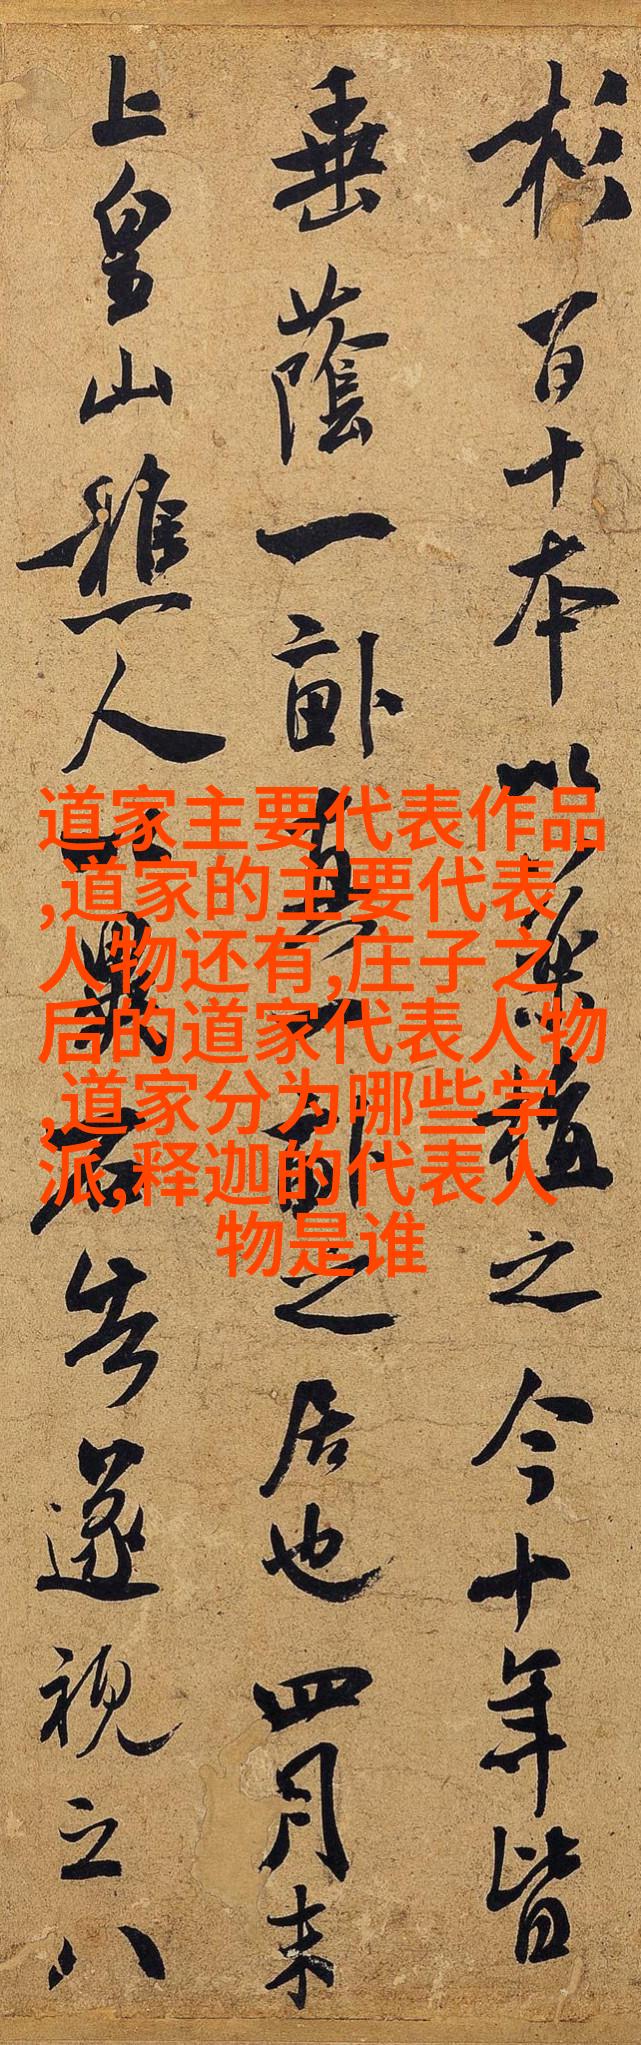 杉百十本以植之今十年皆
垂蔭一畝真一畝之居也四月末
上皇山樵人以異石告遂視之八
道家主要代表作品
,道家的主要代表
人物还有,庄子之
后的道家代表人物
,道家分为哪些学
派,释迦的代表人
物是谁